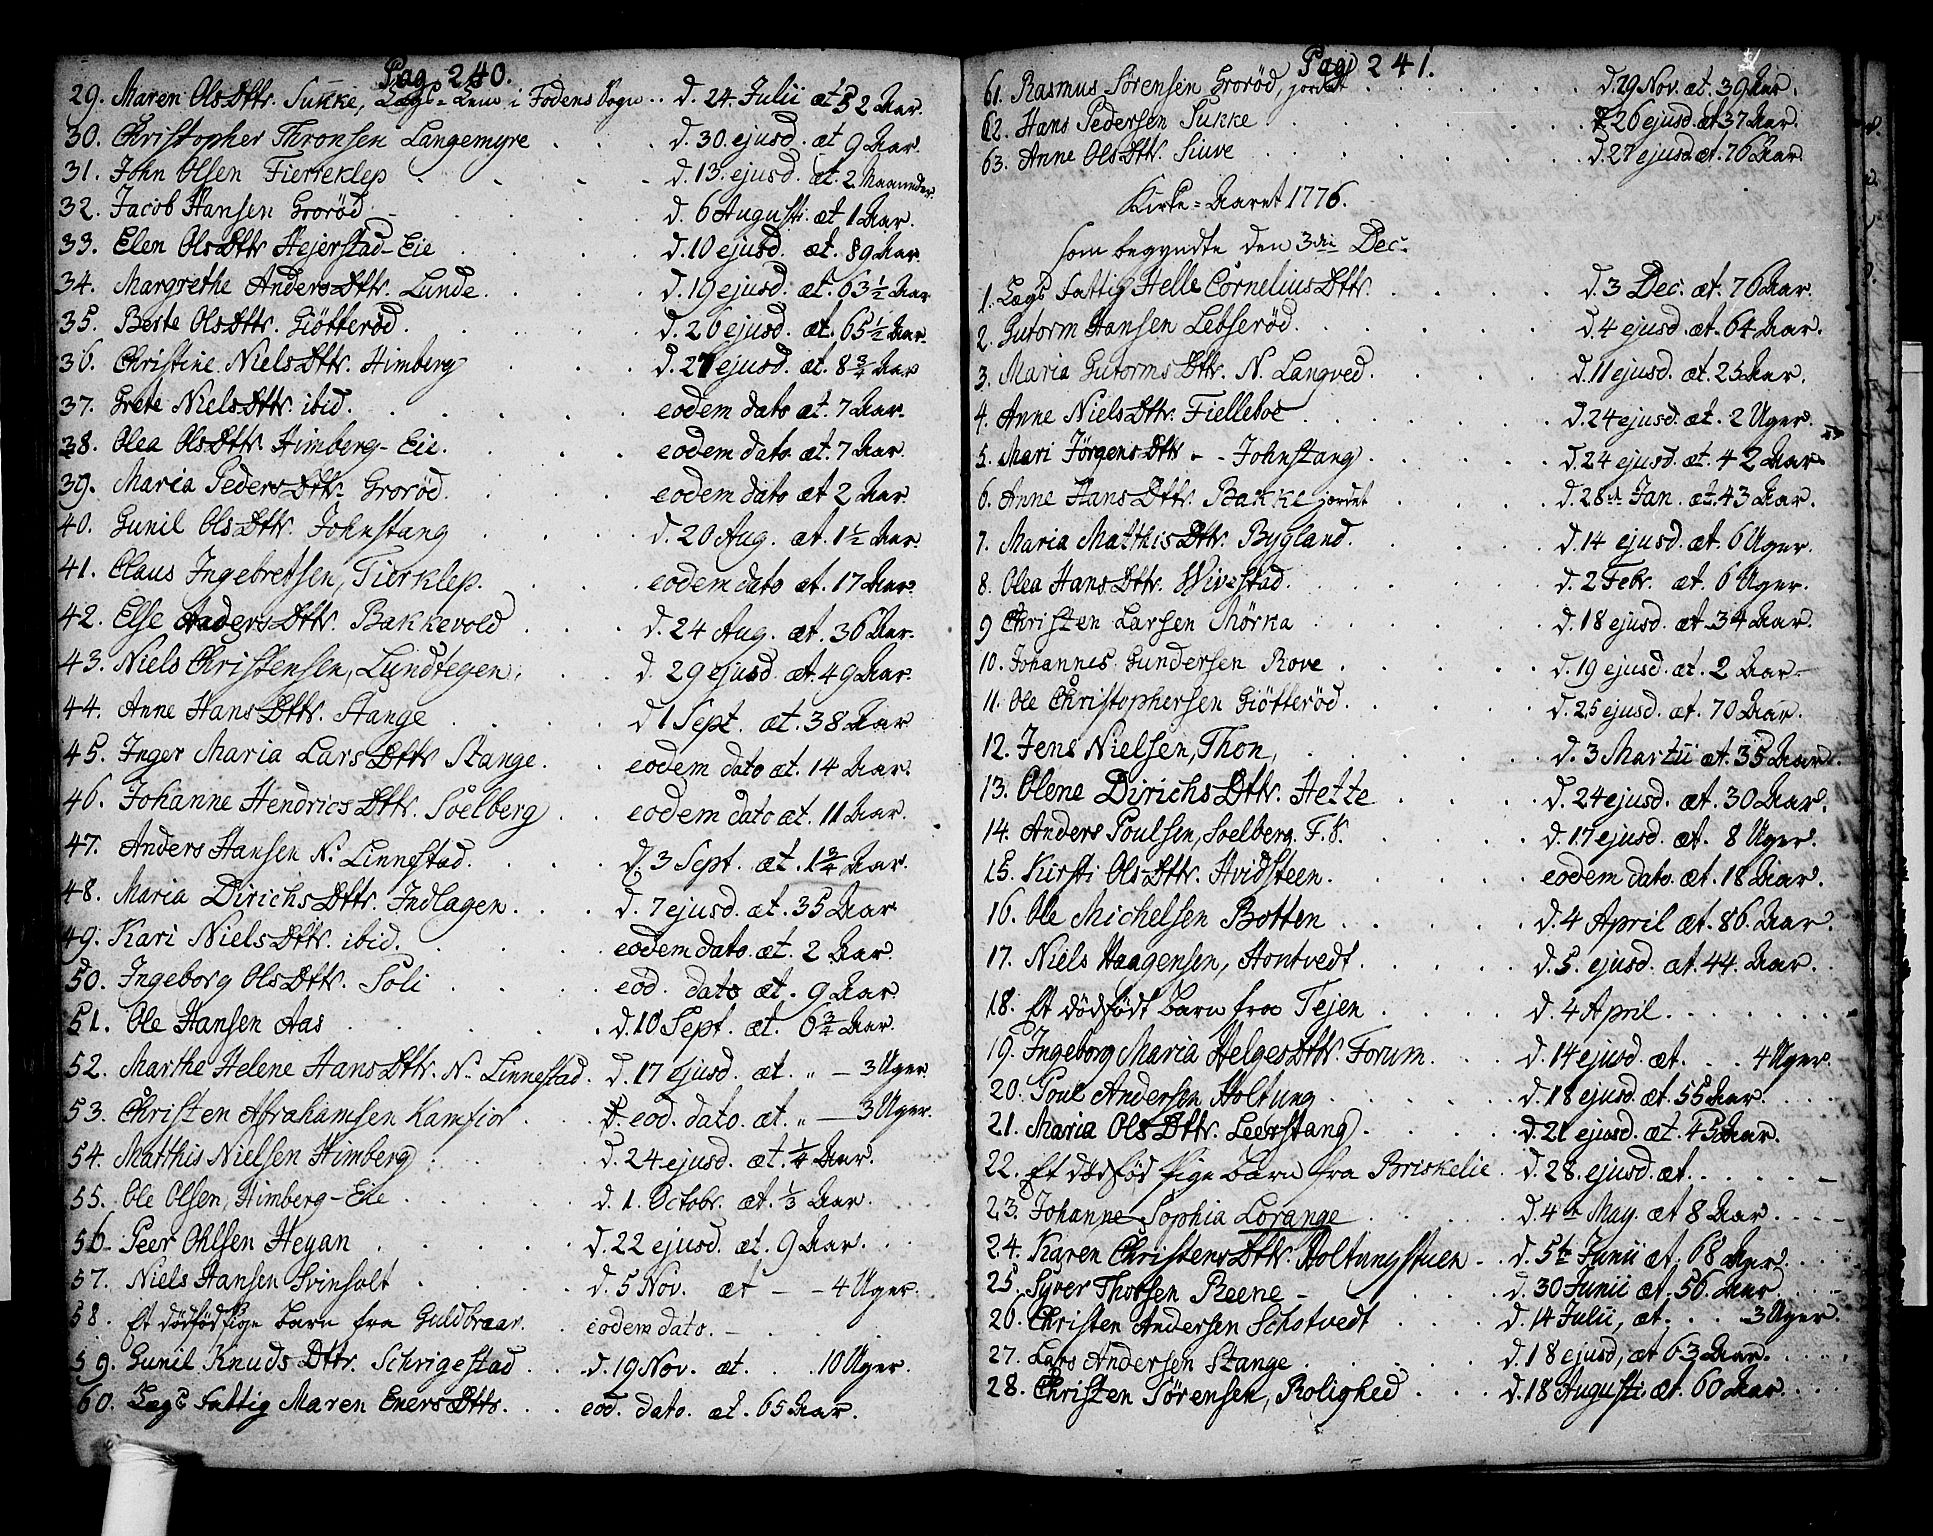 Pag. 240.
29. Maren OlsDttr. Sukke, Lægs-Lem i Fodens Sogn.. d. 24. Julii æt 52 Aar.
30. Christopher Thronsen Langemyre . . . d. 30. ejusd. æt 9 Aar.
31. John Olsen Fierreklep . . . d. 13. ejusd. æt. 2 Maaneder.
32. Jacob Hansen Grorød . . . d. 6 Augusti. æt 1 Aar.
33. Elen OlsDttr Hejerstad-Eie . . . d. 10 ejusd. æt. 89 Aar.
34. Margrethe AndersDttr. Lunde . . . d. 19 ejusd. æt. 63 1/2 Aar
35. Berte OlsDttr. Giötterød . . . d. 26 ejusd. æt. 65 1/2 Aar.
36. Christine NielsDttr. Himberg . . . d. 27 ejusd. æt. 8 3/4 Aar
37. Grete NielsDttr. ibid. . . . eodem dato æt. 7 Aar.
38. Olea OlsDttr. Himberg-Eie. . . . eodem dato æt. 7 Aar.
39. Maria PedersDttr. Grorød. . . . eodem dato æt 2 Aar.
40. Gunil OlsDttr. Johnstang . . . d. 20 Aug. æt. 1 1/2 Aar.
41. Claus Ingebretsen, Fierklep. . . . eodem dato æt. 17 Aar.
42. Else AndersDttr. Bakkevold . . . d. 24 Aug. æt. 36 Aar.
43. Niels Christensen, Lundtegen. . . . d. 29 ejusd æt. 49 Aar.
44. Anne HansDttr. Stange . . . d 1 Sept. æt. 38 Aar
45. Inger Maria LarsDttr Stange. . . eodem dato æt. 14 Aar.
46. Johanne HendricsDttr. Soelberg . . eodem dato æt. 11 Aar.
47. Anders Hansen N. Linnestad. . . . d. 3 Sept. æt. 1 3/4 Aar.
48. Maria DirichsDttr. Indlagen. . . . d. 7 ejusd. æt. 35 Aar
49. Kari NielsDttr. ibid. . . . eodem dato. æt. 2 Aar.
50. Ingeborg OlsDttr. Soli . . . eod. dato æt. 9 Aar
51. Ole Hansen Aas . . . d. 10 Sept. æt. 6 3/4 Aar.
52. Marthe Helene HansDttr. N. Linnestad. d. 17 ejusd. æt. „ — 3 Uger
53. Christen Abrahamsen Kamfior . . . d. eod. dato. æt. „ — 3 Uger.
54. Matthis Nielsen Himberg . . . d. 24 ejusd. æt. 1/4 Aar.
55. Ole Olsen, Himberg-Eie . . . d. 1. Octobr. æt. 1/3 Aar.
56. Peer Ohlsen Heyan . . . d. 22 ejusd. æt. 9 Aar.
57. Niels Hansen Svinholt . . . d. 5 Nov. æt - - 4 Uger.
58. Et dödföd Pige barn fra Guldbraar. . . eodem dato. -
59. Gunil KnudsDttr. Schrigestad . . d. 19 Nov. æt. . . 10 Uger.
60. Lægs fattig Maren EnersDttr. . . . eod. dato. æt. 65 Aar.
Pag 241.
61. Rasmus Sørensen Grorød, jordet . . . d. 29 Nov. æt. 39 Aar.
62. Hans Pedersen Sukke . . . d. 26 ejusd. æt 37 Aar.
63. Anne OlsDttr. Siuve . . . d. 27 ejusd. æt. 76 Aar.
Kirke-Aaret 1776.
som begyndte den 3die Dec.
1. Lægs fattig Helle CorneliusDttr. . . . d. 3 Dec. æt. 76 Aar.
2. Gutorm Hansen Lebserød. . . . d. 4 ejusd. æt. 64 Aar.
3. Maria GutormsDttr. N. Langved. . . . d. 11 ejusd. æt. 25 Aar.
4. Anne NielsDttr. Fielleboe . . . d. 24 ejusd. æt. 2 Uger.
5. Mari JørgensDttr - - Johnstang . . . d. 24 ejusd. æt. 42 Aar.
6. Anne HansDttr. Bakke jordet . . . d. 28de Jan. æt. 43 Aar.
7. Maria MatthisDttr. Bygland. . . . d. 14 ejusd. æt. 6 Uger.
8. Olea HansDttr. Wivestad. . . . d. 2 Febr. æt. 6 Uger.
9 Christen Larsen Mørka . . . d. 18 ejusd. æt. 34 Aar.
10. Johannes Gundersen Rove . . . d. 19 ejusd. æt. 2 Aar-
11. Ole Christophersen Giötterød. . . . d. 25 ejusd. æt. 70 Aar.
12. Jens Nielsen, Thon, . . . d. 3 Martii æt. 35 Aar.
13. Olene DirichsDttr. Hette . . . d. 24 ejusd. æt. 30 Aar.
14. Anders Poulsen, Soelberg. F.K. . . . d. 17 ejusd. æt. 8 Uger.
15. Kirsti OlsDttr. Hvidsteen. . . . eodem dato. æt. 18 Aar.
16. Ole Michelsen Botten . . . d. 4 April æt. 86. Aar.
17. Niels Haagensen, Hontvedt . . . d. 5. ejusd. æt. 44. Aar.
18. Et dödfödt barn fra Tejen . . . d. 4 April. . . .
19. Ingeborg Maria HelgesDttr. Forum. . . d. 14 ejusd. æt. . . 4 Uger.
20. Poul Andersen Holtung . . . d. 18 ejusd. æt. 55 Aar.
21. Maria OlsDttr. Leerstang . . . d. 21 ejusd. æt. 45 Aar.
22. Et dödföd Pige barn fra Briskelie . d. 28. ejusd. æt. . . .
23. Johanne Sophia Lorange . . . d. 4de May. æt 8 Aar.
24. Karen ChristensDttr. Holtungstuen - . d. 5te Junii æt. 68 Aar.
25. Syver Thorsen Reene - . . . d. 30 Junii æt. 56. Aar.
26. Christen Andersen Schotvedt . . . d. 14 Julii, æt. . . 3 Uger.
27. Lars Andersen Stange . . . d. 18 ejusd, æt 63 Aar.
28. Christen Sørensen, Rolighed . . . d. 18 Augusti. æt. 60 Aar.